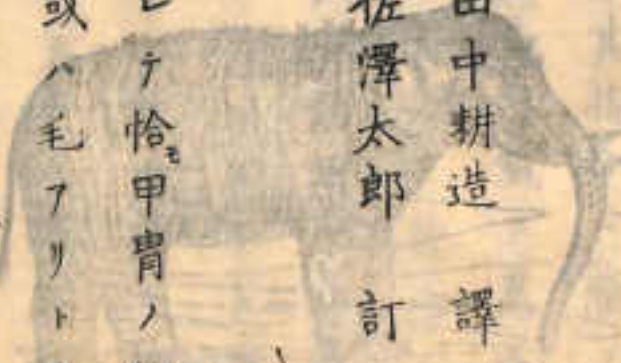 田中耕造 譯
佐澤太郎 訂
テ恰モ甲冑ノ
或ハ毛アリト